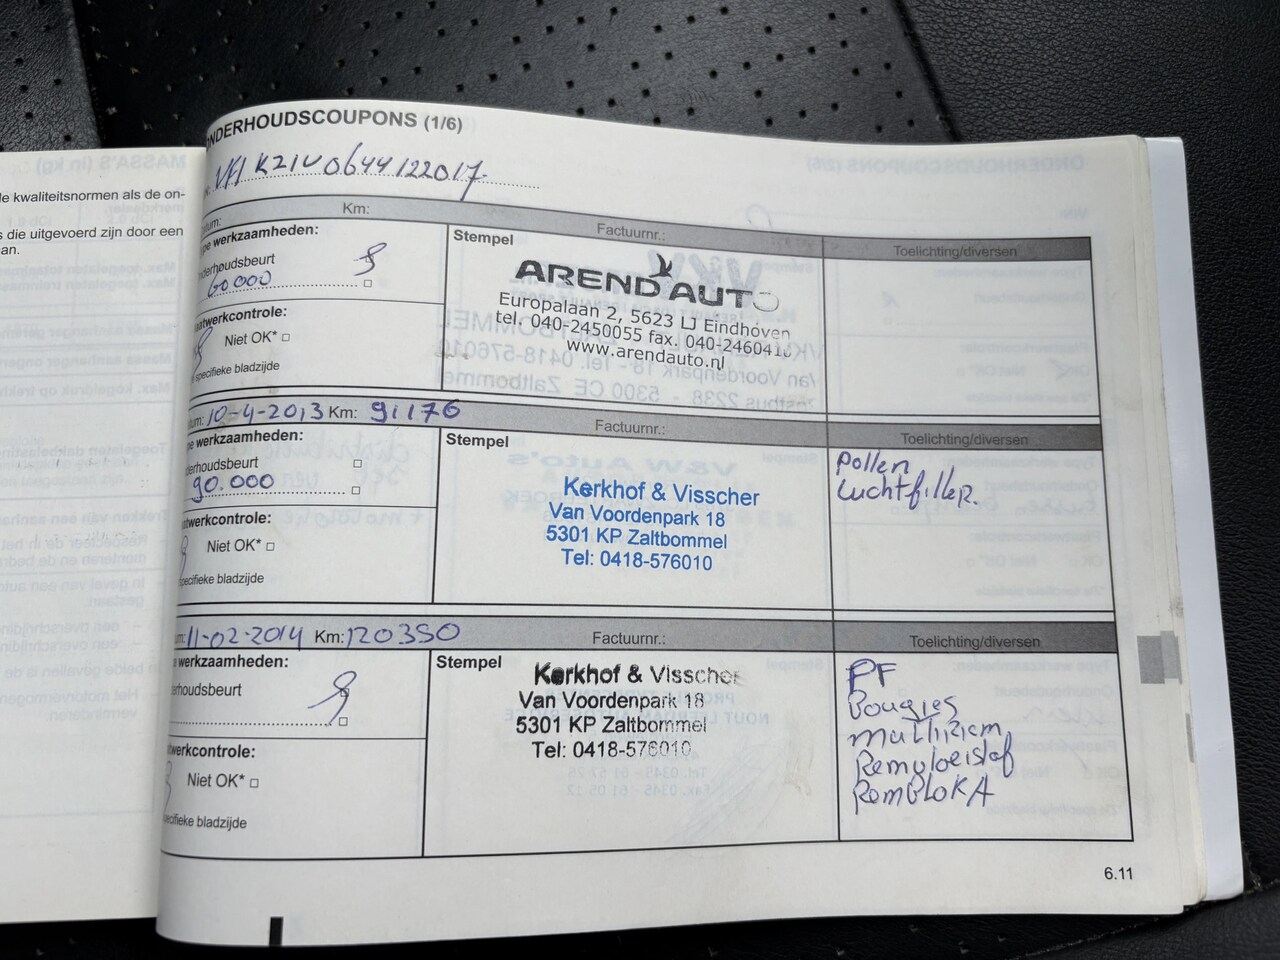 de kwaliteitsnormen als de on-
s die uitgevoerd zijn door een
an.
ONDERHOUDSCOUPONS (1/6)
VF1 KZ1U 0644122017
Km:
Factuurnr.:
Toelichting/diversen
werkzaamheden:
Stempel
onderhoudsbeurt
60000
Niet OK*
specifieke bladzijde
AREND AUTO
Europalaan 2, 5623 LJ Eindhoven
tel. 040-2450055 fax. 040-2460410
www.arendauto.nl
10-4-2013 Km: 91176
Factuurnr.:
Toelichting/diversen
werkzaamheden:
Stempel
derhoudsbeurt
90.000
atwerkcontrole:
Niet OK*
specifieke bladzijde
Kerkhof & Visscher
Van Voordenpark 18
5301 KP Zaltbommel
Tel: 0418-576010
Pollen
Luchtfilter.
11-02-2014 Km: 120350
Factuurnr.:
Toelichting/diversen
werkzaamheden:
Stempel
erhoudsbeurt
twerkcontrole:
Niet OK*
ecifieke bladzijde
Kerkhof & Visscher
Van Voordenpark 18
5301 KP Zaltbommel
Tel: 0418-576010
PF
Bougies
multiriem
Remvloeistof
RemBloKA
6.11